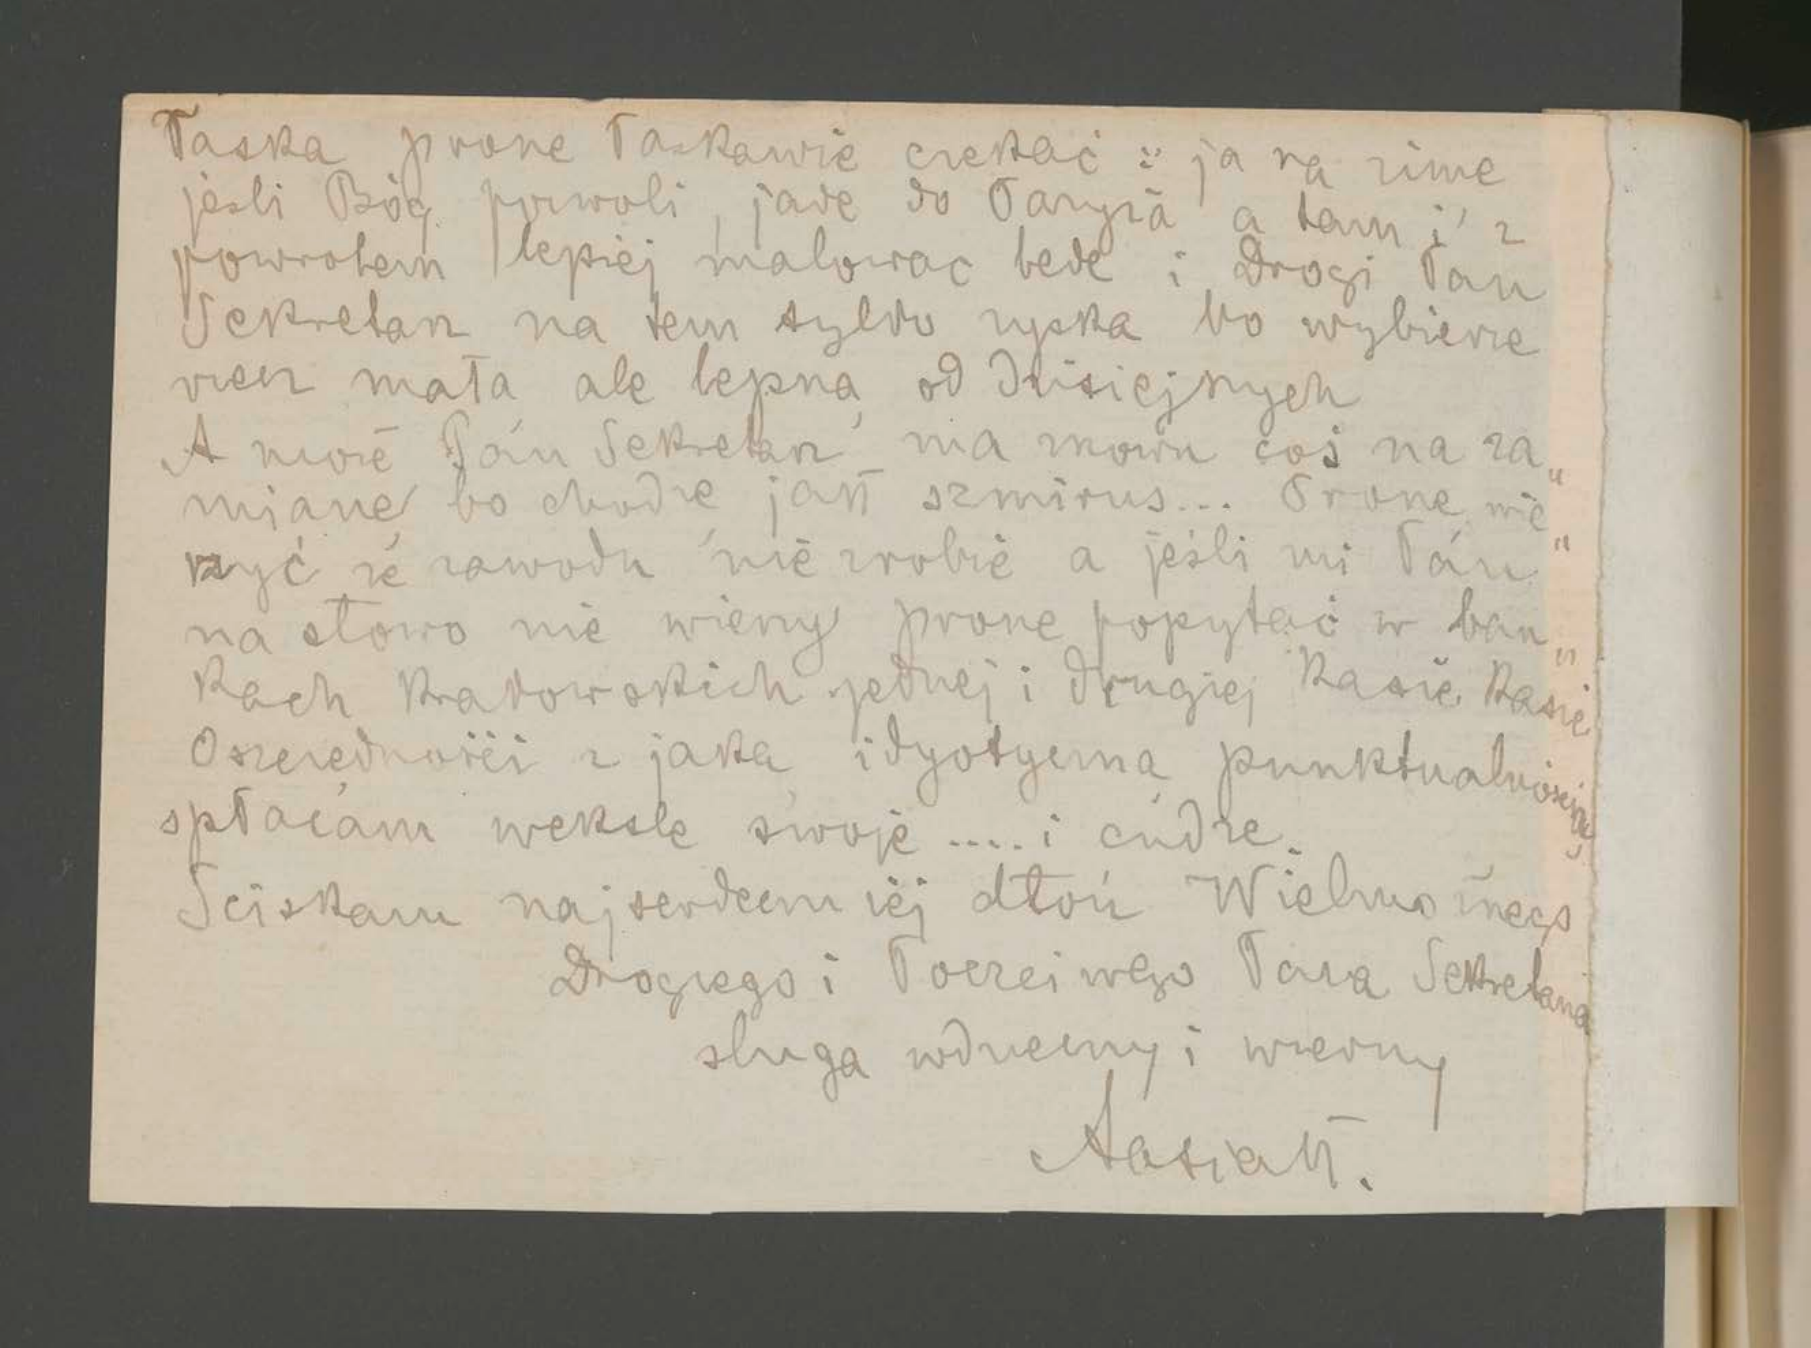 Łaska proszę łaskawie czekać :: ja na zimę
jeśli Bóg pozwoli, jadę do Paryża a tam i z
powrotem lepiej malować będę i Drogi Pan
Sekretarz na tem tylko zyska bo wybierze
rzecz małą ale lepszą od dzisiejszych
A może Pan Sekretarz ma znowu coś na za„
mianę bo chodzę jak szmirus... Proszę wie„
rzyć że zawodu nie zrobię a jeśli mi Pan
na słowo nie wierzy proszę popytać w ban„
kach krakowskich jednej i drugiej kasie kasie
Oszczędności z jaką idyotyczną punktualnością
spłacam weksle swoje ..... i cudze.
Ściskam najserdeczniej dłoń Wielmożnego
Drogiego i Poczciwego Pana Sekretarza
sługa wdzięczny i wierny